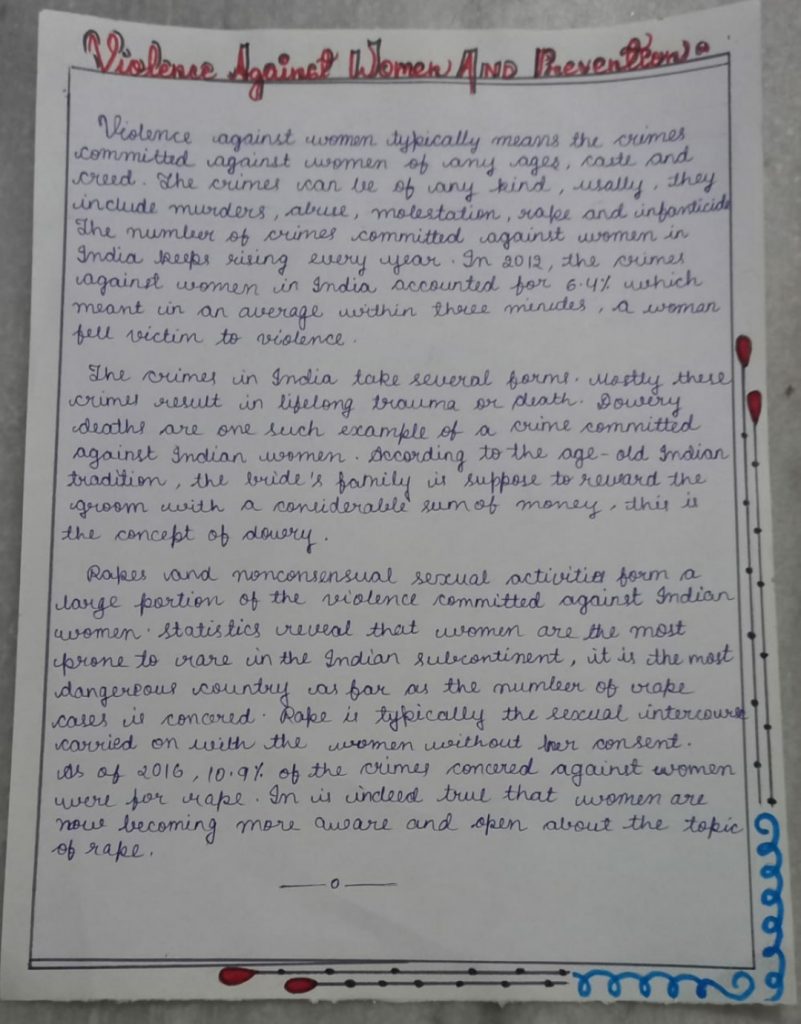 Violence Against Women AND Prevention
Violence against women typically means the crimes
committed against women of any ages, caste and
creed. The crimes can be of any kind, usally, they
include murders, abuse, molestation, rape and infanticide
The number of crimes committed against women in
India keeps rising every year. In 2012, the crimes
against women in India accounted for 6.4% which
meant in an average within three minutes, a woman
fell victim to violence.
The crimes in India take several forms. Mostly these
crimes result in lifelong trauma or death. Dowery
deaths are one such example of a crime committed
against Indian women. According to the age-old Indian
tradition, the bride's family is suppose to reward the
groom with a considerable sum of money, this is
the concept of dowry.
Rapes and nonconsensual sexual activities form a
large portion of the violence committed against Indian
women. Statistics reveal that women are the most
prone to rare in the Indian subcontinent, it is the most
dangereous country as far as the number of rape
cases is concered. Rape is typically the sexual intercourse
carried on with the women without her consent.
As of 2016, 10.9% of the crimes concered against women
were for rape. In is indeed true that women are
now becoming more aware and open about the topic
of rape.